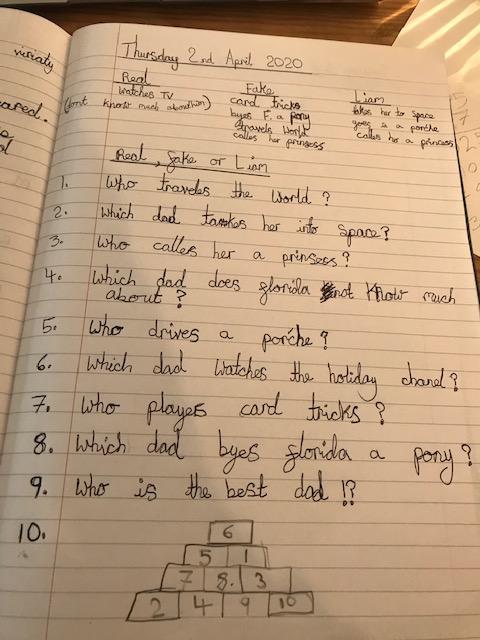 viriaty
ared.
Thursday 2nd April 2020
Real Fake Liam
Watches TV card tricks takes her to space
(dont know much abouthim) byes F. a pony goes in a porche
travels World calls her a princess
calls her prinsess
Real, fake or Liam
1. Who traveles the World?
2. Which dad takes her into Space?
3. Who calles her a prinsess?
4. Which dad does florida not know much
about?
5. Who drives a porche?
6. Which dad watches the holiday chanel?
7. Who playes card tricks?
8. Which dad byes florida a pony?
9. Who is the best dad!?
10.
6
5 1
7 8. 3
2 4 9 10